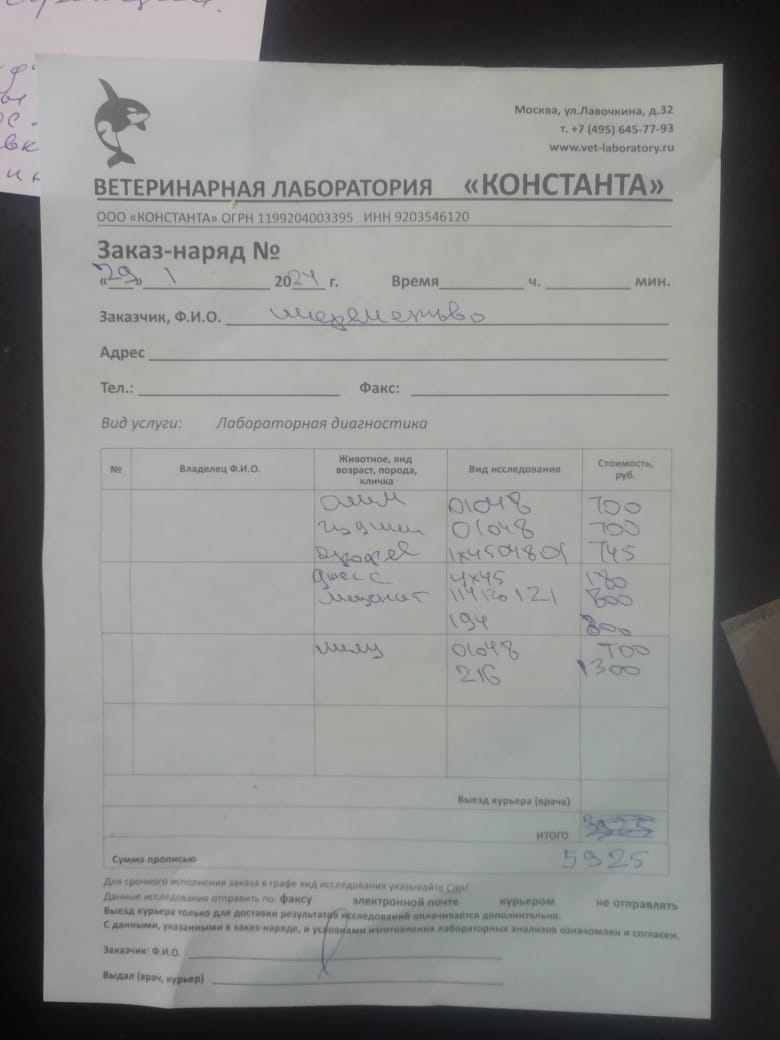 Москва, ул.Лавочкина, д.32
т. +7 (495) 645-77-93
www.vet-laboratory.ru
ВЕТЕРИНАРНАЯ ЛАБОРАТОРИЯ «КОНСТАНТА»
ООО «КОНСТАНТА» ОГРН 1199204003395 ИНН 9203546120
Заказ-наряд №
«29» 1 2024 г. Время ч. мин.
Заказчик, Ф.И.О.
Адрес
Тел.: Факс:
Вид услуги: Лабораторная диагностика
№ Владелец Ф.И.О. Животное, вид возраст, порода, кличка Вид исследования Стоимость, руб.
01048 700
01048 700
745
Джесс 4х45 180
800
194 800
01048 700
216 1300
Выезд курьера (врача)
ИТОГО
Сумма прописью 5925
Для срочного исполнения заказа в графе вид исследования указывайте Cito!
Данные исследования отправить по: факсу электронной почте курьером не отправлять
Выезд курьера только для доставки результатов исследований оплачивается дополнительно.
С данными, указанными в заказ-наряде, и условиями изготовления лабораторных анализов ознакомлен и согласен.
Заказчик: Ф.И.О.
Выдал (врач, курьер)